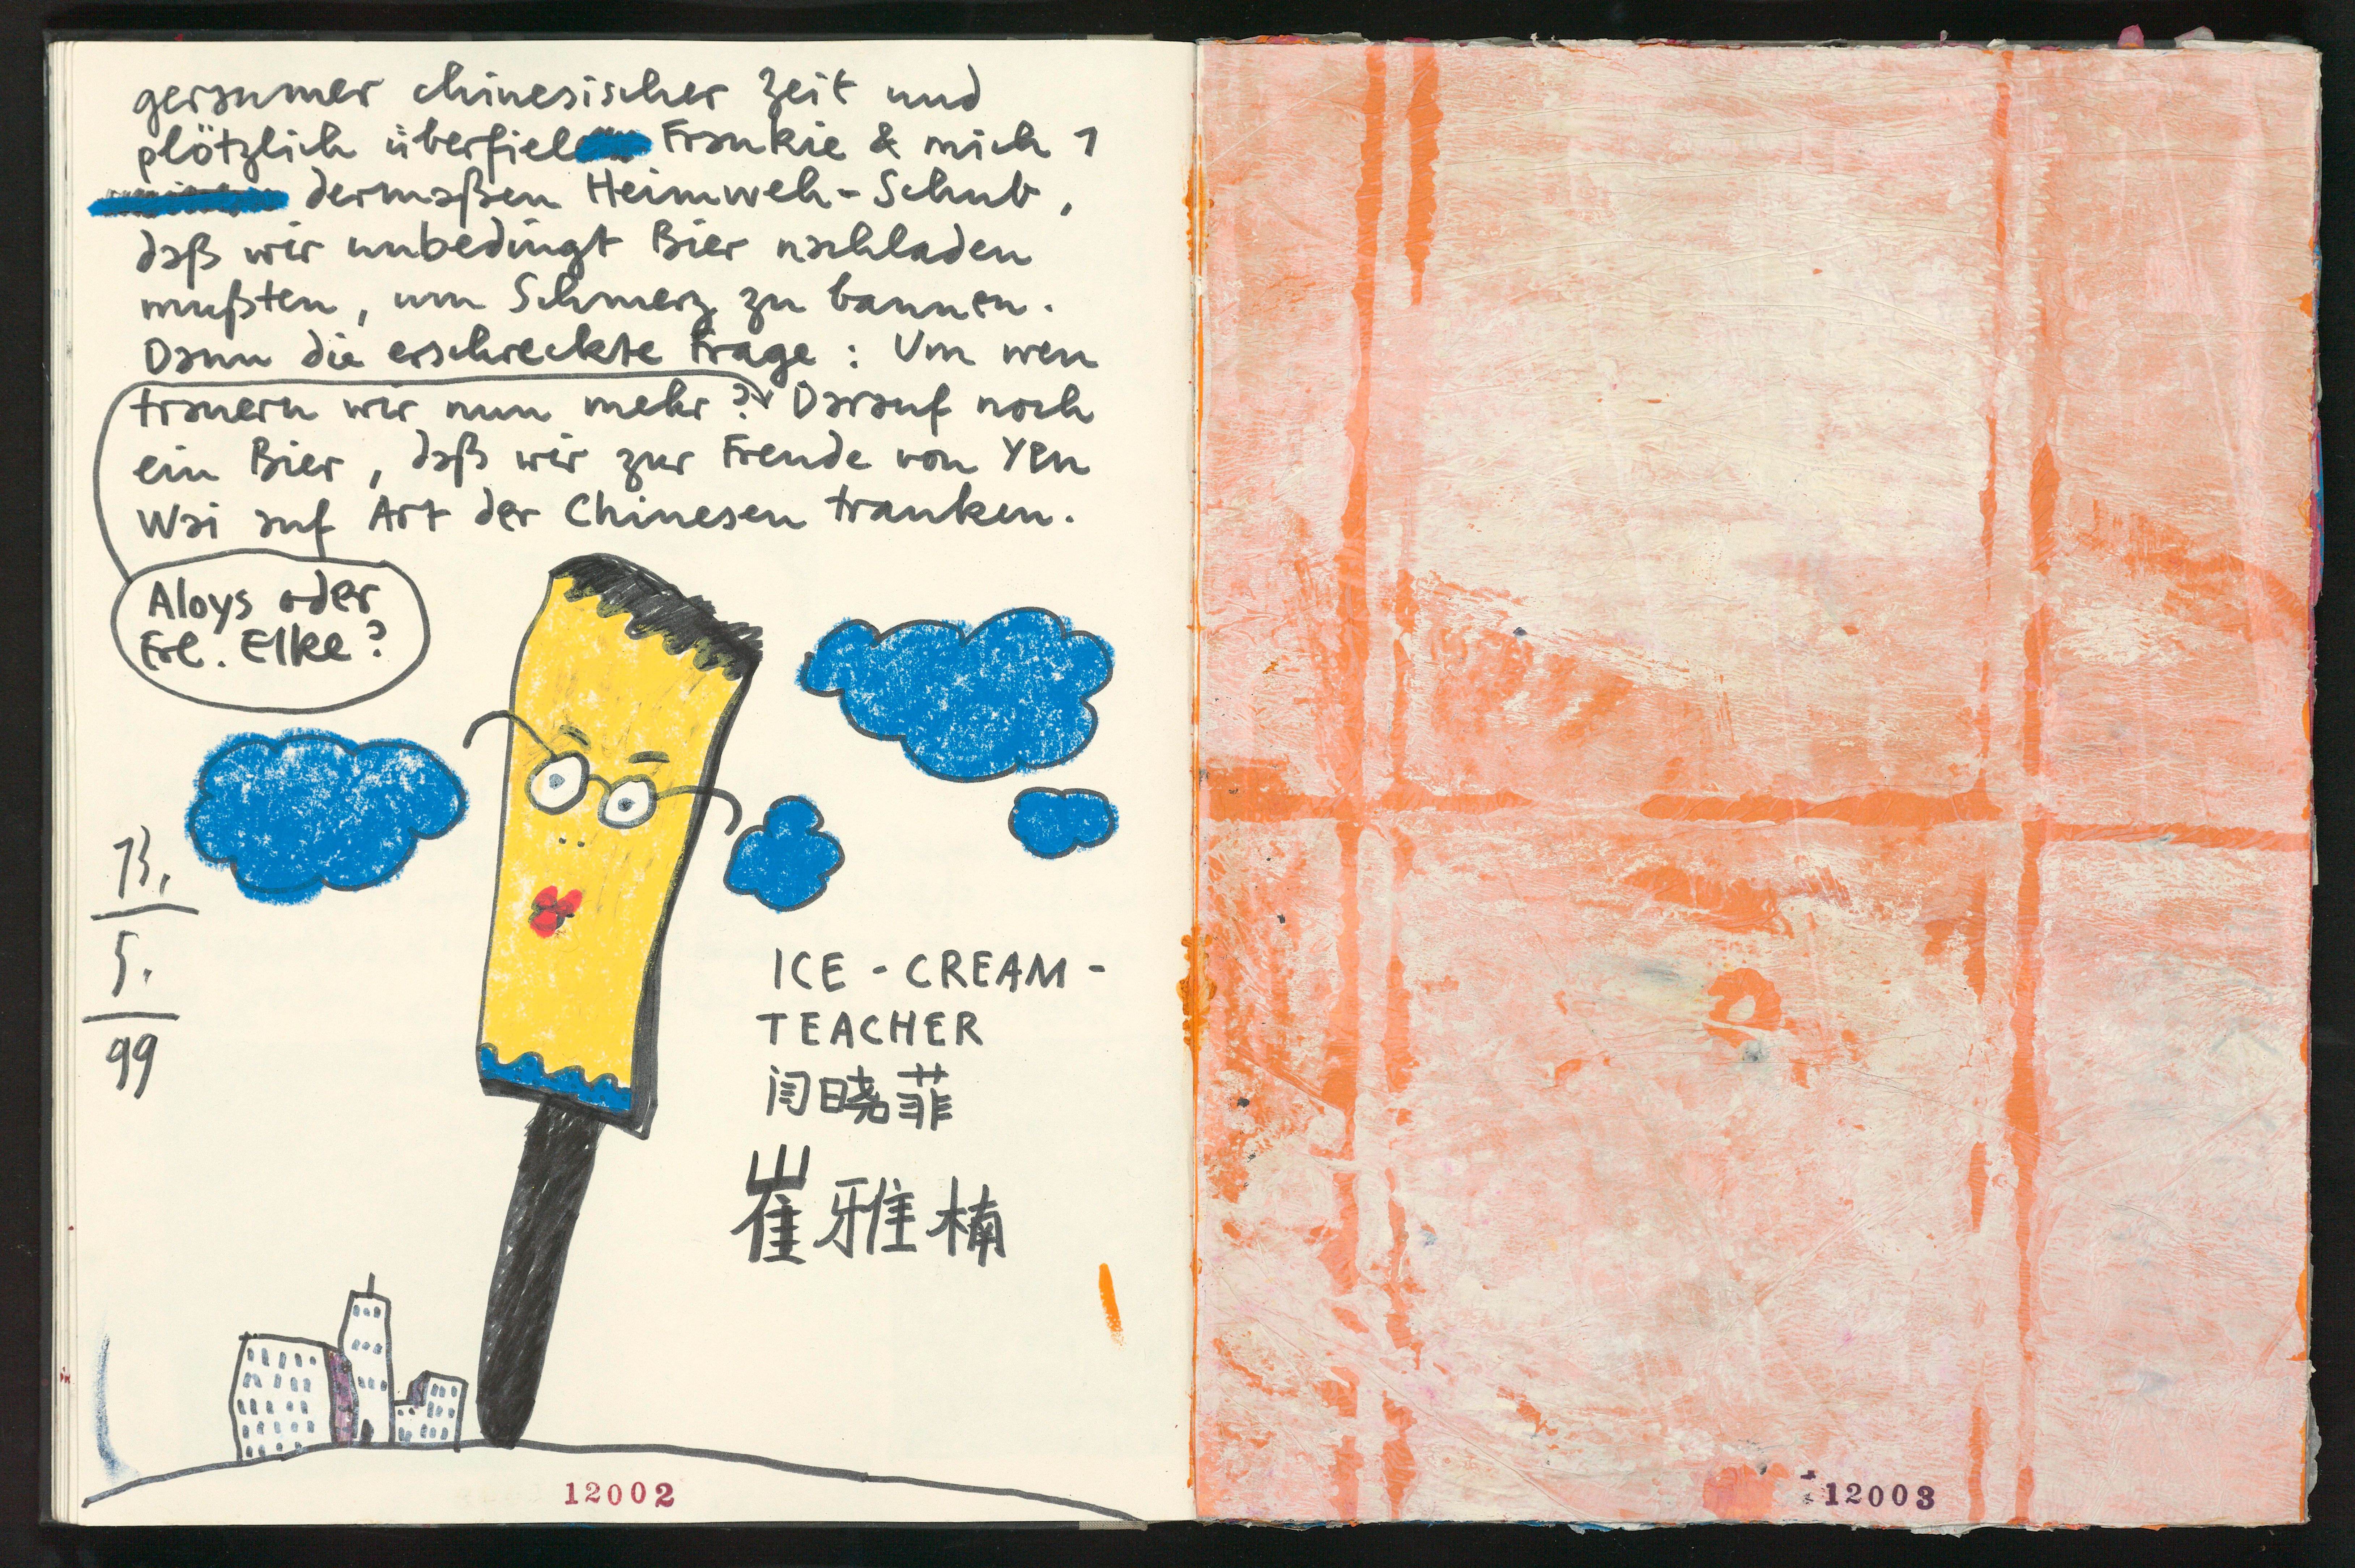 geraumer chinesischer Zeit und
plötzlich überfiel Frankie & mich 1
dermaßen Heimweh-Schub,
daß wir unbedingt Bier nachladen
mußten, um Schmerz zu bannen.
Dann die erschreckte Frage: Um wen
trauern wir nun mehr? Darauf noch
ein Bier, daß wir zur Freude von Yen
Wai auf Art der Chinesen tranken.
Aloys oder
Frl. Elke?
13.
5.
99
ICE-CREAM-
TEACHER
闫晓菲
崔雅楠
12002
12003